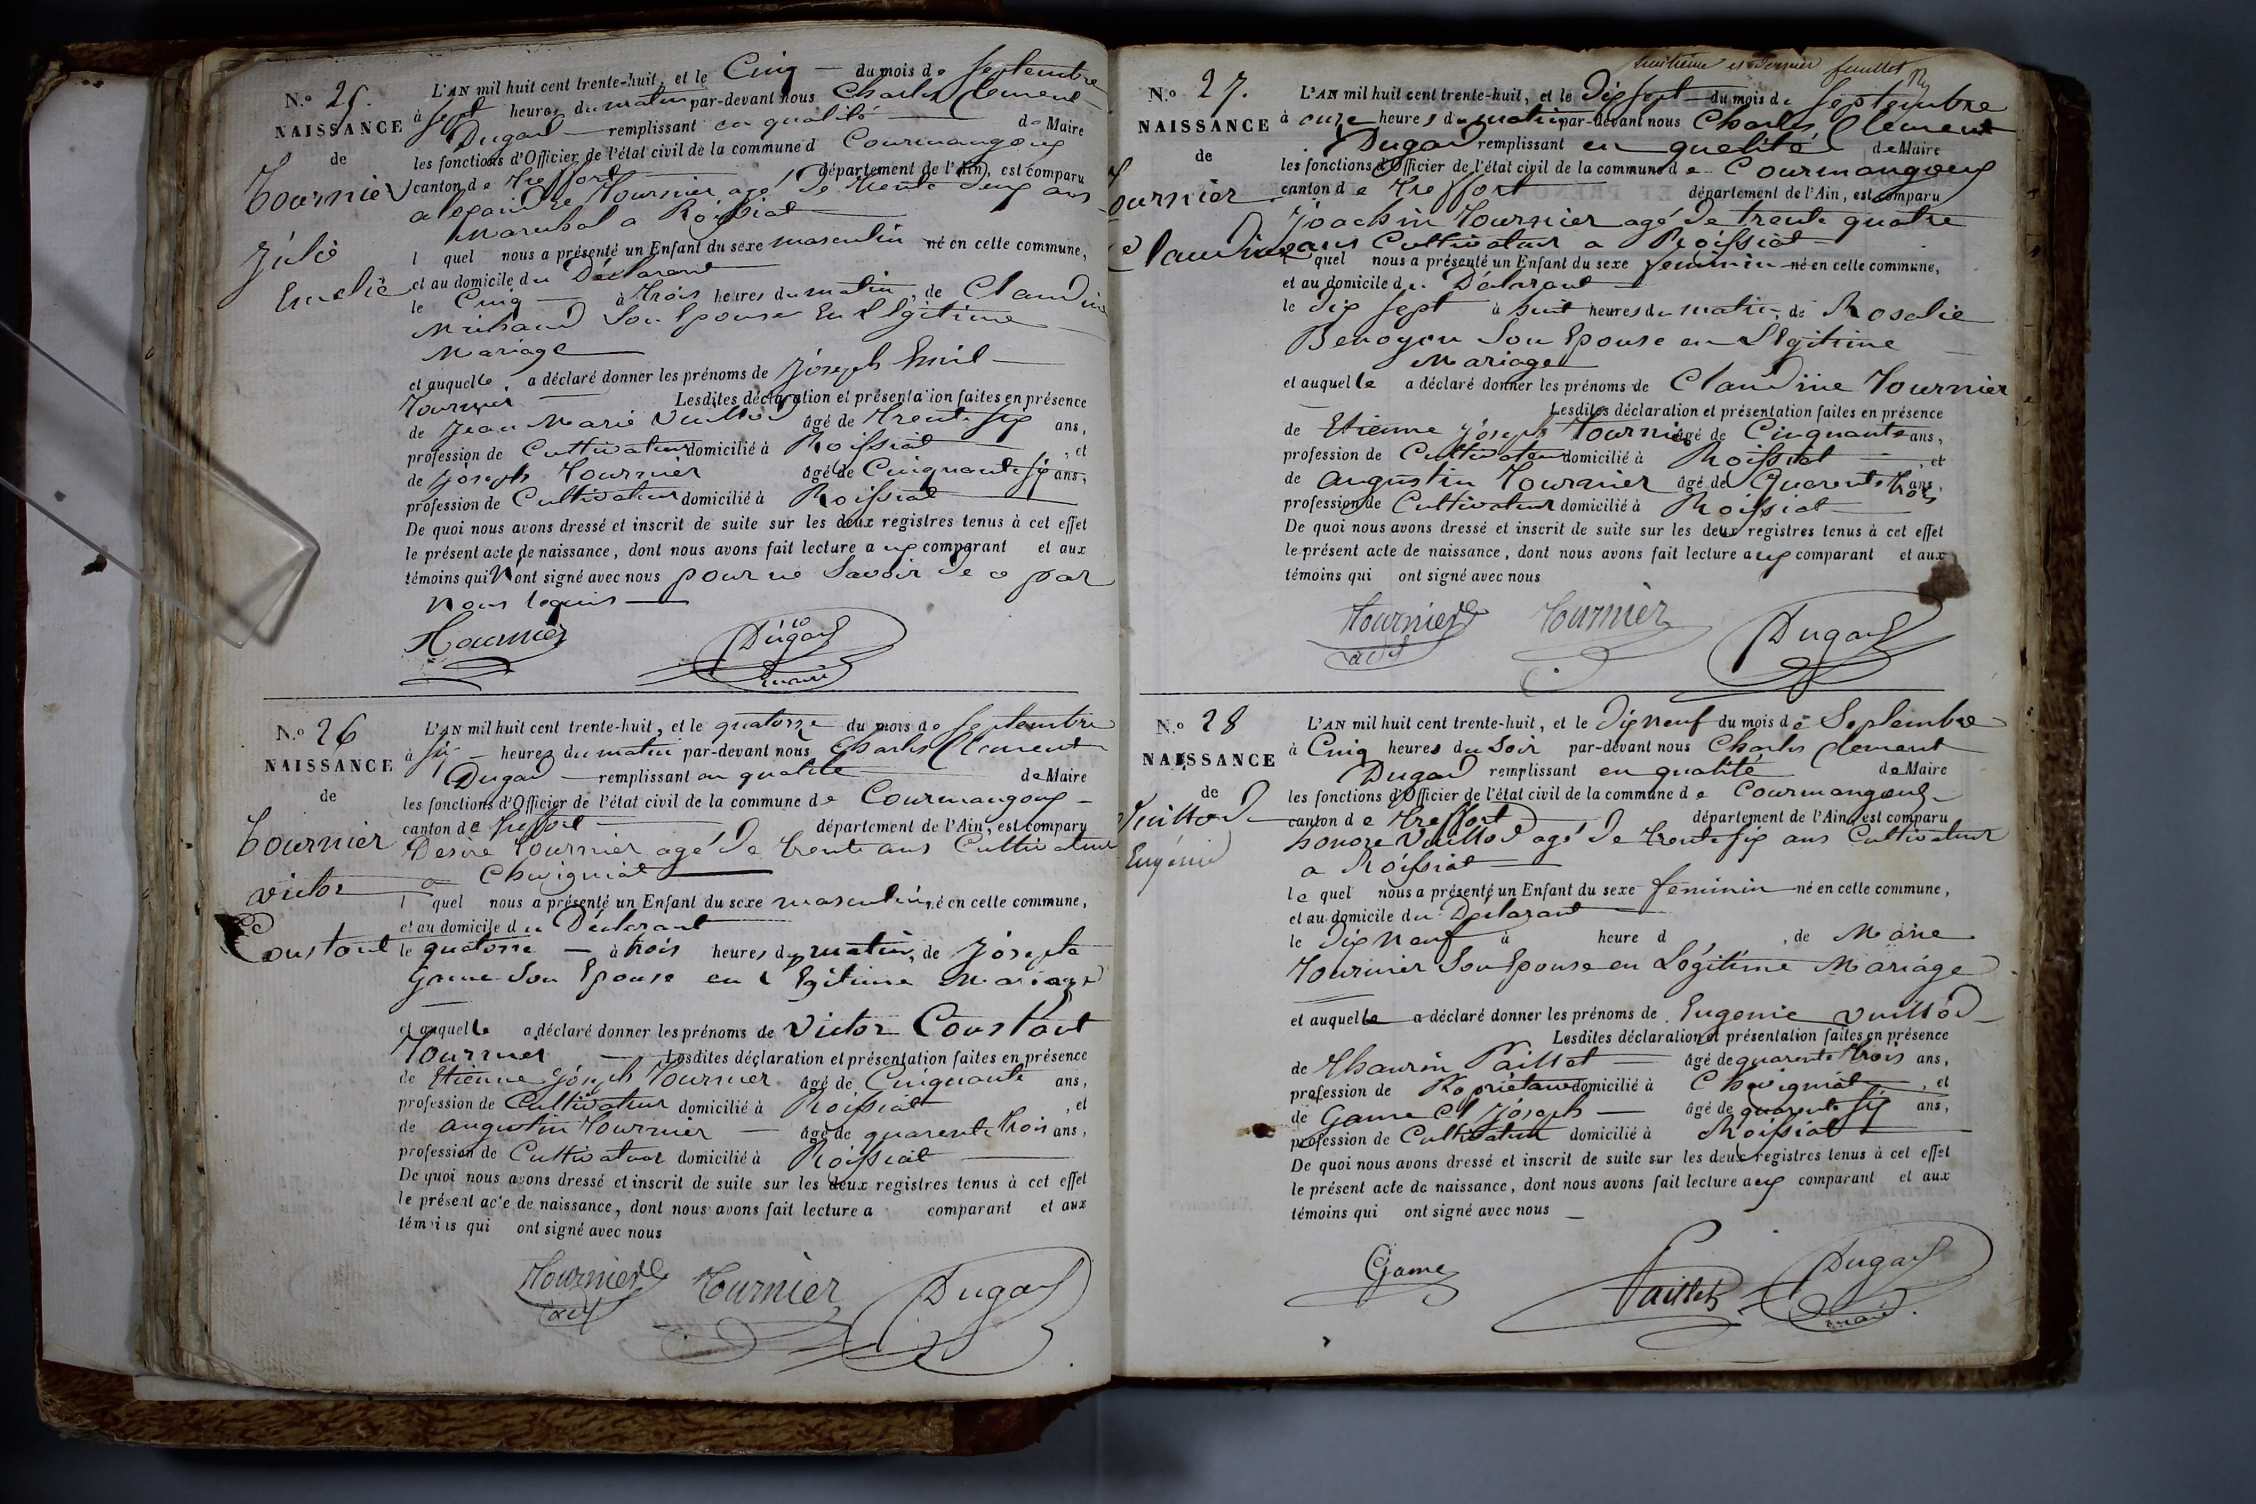 N.o 25.
NAISSANCE
de
Tournier
Julie
Emelie
L'AN mil huit cent trente-huit, et le Cinq du mois de Septembre
à Sept heures du matin par-devant nous Charles Clement
Dugad remplissant en qualité de Maire
les fonctions d'Officier de l'état civil de la commune d Courmangoux
canton de Treffort département de l'Ain, est comparu
Tournier agé de trente deux ans
Marechal a Roissiat
l quel nous a présenté un Enfant du sexe masculin né en cette commune,
et au domicile du Déclarant
le Cinq à trois heures du matin, de Claudine
Michaud Son Epouse En Légitime
Mariage
et auquelle a déclaré donner les prénoms de Joseph Emil
Tournier Lesdites déclaration et présentation faites en présence
de Jean Marie Vuillod âgé de Trente Six ans,
profession de Cultivateur domicilié à Roissiat, et
de Joseph Tournier âgé de Cinquante Six ans,
profession de Cultivateur domicilié à Roissiat
De quoi nous avons dressé et inscrit de suite sur les deux registres tenus à cet effet
le présent acte de naissance, dont nous avons fait lecture aux comparant et aux
témoins qui N'ont signé avec nous pour ne Savoir de ce par
Nous requis
Tournier Dugad
maire
N.o 26
NAISSANCE
de
Tournier
victor
Constant
L'AN mil huit cent trente-huit, et le quatorze du mois de Septembre
à Six heures du matin par-devant nous Charles Clement
Dugad remplissant en qualité de Maire
les fonctions d'Officier de l'état civil de la commune de Courmangoux
canton de Treffort département de l'Ain, est comparu
Desire Tournier agé de trente ans Cultivateur
a Chevigniat
l quel nous a présenté un Enfant du sexe masculin, né en cette commune,
et au domicile du Déclarant
le quatorze à trois heures du matin, de Josephte
Game Son Epouse en Légitime Mariage
et auquelle a déclaré donner les prénoms de Victor Constant
Tournier Lesdites déclaration et présentation faites en présence
de Etienne Joseph Tournier âgé de Cinquante ans,
profession de Cultivateur domicilié à Roissiat, et
de augustin Tournier âgé de quarente trois ans,
profession de Cultivateur domicilié à Roissiat
De quoi nous avons dressé et inscrit de suite sur les deux registres tenus à cet effet
le présent acte de naissance, dont nous avons fait lecture a comparant et aux
témoins qui ont signé avec nous
Tournier Tournier Dugad
huitième et dernier feuillet
N.o 27.
NAISSANCE
de
Tournier
Claudine
L'AN mil huit cent trente-huit, et le Dix Sept du mois de Septembre
à onze heures du matin par-devant nous Charles Clement
Dugad remplissant en qualité de Maire
les fonctions d'Officier de l'état civil de la commune de Courmangoux
canton de Treffort département de l'Ain, est comparu
Joachin Tournier agé de trente quatre
ans Cultivateur a Roissiat
quel nous a présenté un Enfant du sexe feminin né en cette commune,
et au domicile du Déclarant
le dix sept à huit heures du matin, de Rosalie
Benoyon Son Epouse en Légitime
Mariage
et auquelle a déclaré donner les prénoms de Claudine Tournier
Lesdites déclaration et présentation faites en présence
de Etienne Joseph Tournier âgé de Cinquante ans,
profession de Cultivateur domicilié à Roissiat, et
de augustin Tournier âgé de Quarente trois ans,
profession de Cultivateur domicilié à Roissiat
De quoi nous avons dressé et inscrit de suite sur les deux registres tenus à cet effet
le présent acte de naissance, dont nous avons fait lecture aux comparant et aux
témoins qui ont signé avec nous
Tournier Tournier Dugad
N.o 28
NAISSANCE
de
Vuillod
Eugénie
L'AN mil huit cent trente-huit, et le Dix neuf du mois de Septembre
à Cinq heures du Soir par-devant nous Charles Clement
Dugad remplissant en qualité de Maire
les fonctions d'Officier de l'état civil de la commune de Courmangoux
canton de Treffort département de l'Ain, est comparu
honore Vuillod agé de trente Six ans Cultivateur
a Roissiat
le quel nous a présenté un Enfant du sexe feminin né en cette commune,
et au domicile du Déclarant
le Dix Neuf à heure d , de Marie
Tournier Son Epouse en Légitime Mariage
et auquelle a déclaré donner les prénoms de Eugenie Vuillod
Lesdites déclaration et présentation faites en présence
de Thaurin Paillet âgé de quarente trois ans,
profession de Propriétaire domicilié à Chevigniat, et
de Game Cl Joseph âgé de quarente Six ans,
profession de Cultivateur domicilié à Roissiat
De quoi nous avons dressé et inscrit de suite sur les deux registres tenus à cet effet
le présent acte de naissance, dont nous avons fait lecture aux comparant et aux
témoins qui ont signé avec nous
Game Paillet Dugad
maire